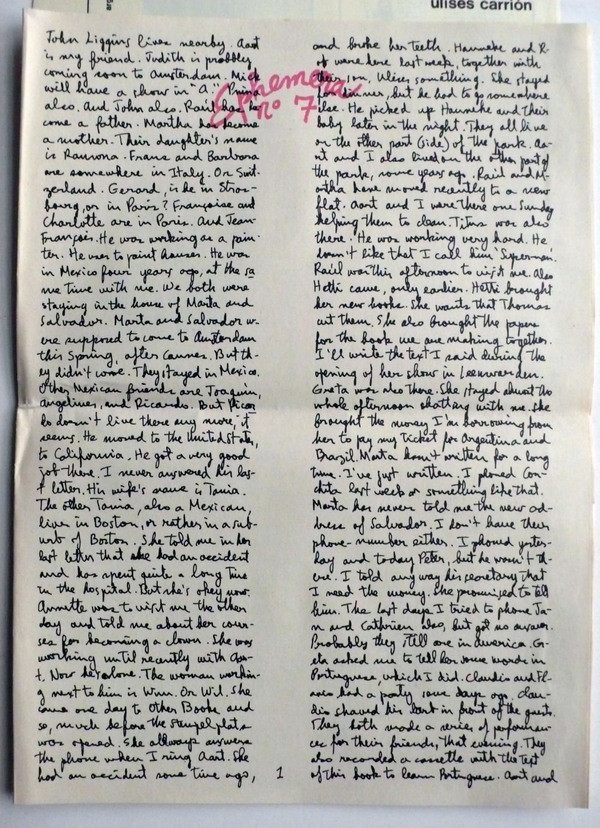 ulises carrión
Ephemera
nº 7
John Liggins lives nearby. Aart
is my friend. Judith is probably
coming soon to Amsterdam. Mick
will have a show in "A". Pnina
also. And John also. Raúl has be
come a father. Martha has become
a mother. Their daughter's name
is Ramona. Frans and Barbara
are somewhere in Italy. Or Swit-
zerland. Gerard, is he in Stras-
bourg, or in Paris? Françoise and
Charlotte are in Paris. And Jean-
François. He was working as a pain-
ter. He uses to paint houses. He was
in Mexico four years ago, at the sa
me time with me. We both were
staying in the house of Marta and
Salvador. Marta and Salvador w-
ere supposed to come to Amsterdam
this Spring, after Cannes. But th-
ey didn't come. They stayed in Mexico.
Other Mexican friends are Joaquín,
Angelines, and Ricardo. But Ricar
do doesn't live there any more, it
seems. He moved to the United States,
to California. He got a very good
job there. I never answered his las-
t letter. His wife's name is Tania.
The other Tania, also a Mexican,
lives in Boston, or rather in a sub-
urb of Boston. She told me in her
last letter that she had an accident
and has spent quite a long time
in the hospital. But she's okey now.
Annette was to visit me the other
day and told me about her cour-
ses for becoming a clown. She was
working until recently with Aar-
t. Now he's alone. The woman workin-
g next to him is Wim. Or Wil. She
came one day to Other Books and
so, much before the Stempelplaats
was opened. She allways answers
the phone when I ring Aart. She
had an accident some time ago,
1
and broke her teeth. Hanneke and R-
ot were here last week, together with
their son, Ulises something. She stayed
for dinner, but he had to go somewhere
else. He picked up Hanneke and their
baby later in the night. They all live
on the other part (side) of the park. Aa-
rt and I also lived on the other part of
the park, some years ago. Raúl and M-
artha have moved recently to a new
flat. Aart and I were there one Sunday
helping them to clean. Titus was also
there. He was working very hard. He
doesn't like that I call him 'Superman'.
Raúl was this afternoon to visit me. Also
Hetti came, only earlier. Hetti brought
her new books. She wants that Thomas
cut them. She also brought the papers
for the book we are making together.
I'll write the text I said during the
opening of her show in Leeuwarden.
Greta was also there. She stayed almost the
whole afternoon chatting with me. She
brought the money I'm borrowing from
her to pay my ticket for Argentina and
Brazil. Marta hasn't written for a long
time. I've just written. I phoned Con-
chita last week or something like that.
Marta has never told me the new ad-
dress of Salvador. I don't have their
phone-number either. I phoned yester-
day and today Peter, but he wasn't th-
ere. I told any way his secretary that
I need the money. She promised to tell
him. The last days I tried to phone Ja-
n and Cathrien also, but got no answer.
Probably they still are in America. G-
reta asked me to tell her some words in
Portuguese, which I did. Claudio and Fl-
avio had a party some days ago. Clau-
dio shaved his last in front of the guests.
They both made a series of performan-
ces for their friends, that evening. They
also recorded a cassette with the text
of this book to learn Portuguese. Aart and